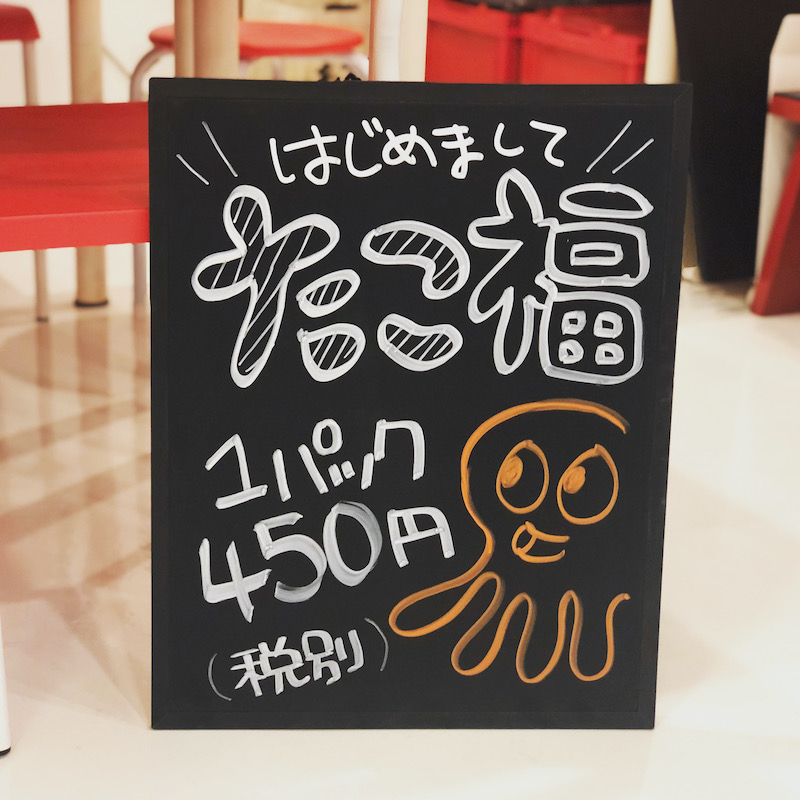 はじめまして
たこ福
1パック
450円
(税別)